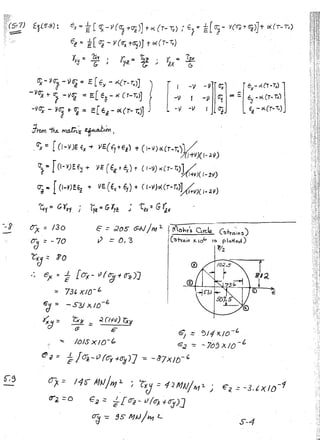 5-7) Eq(5-8): εx = 1/E [σx - ν(σy+σz)] + α(T-T₀) ; εy = 1/E [σy - ν(σx+σz)] + α(T-T₀)
εz = 1/E [σz - ν(σx+σy)] + α(T-T₀)
γxy = τxy/G ; γyz = τyz/G ; γzx = τzx/G
σx - νσy - νσz = E[εx - α(T-T₀)]
-νσx + σy - νσz = E[εy - α(T-T₀)]
-νσx - νσy + σz = E[εz - α(T-T₀)]
1 -ν -ν σx = E εx - α(T-T₀)
-ν 1 -ν σy εy - α(T-T₀)
-ν -ν 1 σz εz - α(T-T₀)
From the matrix equation,
σx = [(1-ν)Eεx + νE(εy+εz) + (1-ν)α(T-T₀)]/(1+ν)(1-2ν)
σy = [(1-ν)Eεy + νE(εx+εz) + (1-ν)α(T-T₀)]/(1+ν)(1-2ν)
σz = [(1-ν)Eεz + νE(εx+εy) + (1-ν)α(T-T₀)]/(1+ν)(1-2ν)
τxy = Gγxy ; τyz = Gγyz ; τzx = Gγzx
-8 σx = 130 E = 205 GN/m²
σy = -70 ν = 0.3
τxy = 80
∴ εx = 1/E [σx - ν(σy+σz)]
= 736 x10-6
εy = -531 x10-6
γxy = τxy/G = 2(1+ν)τxy/E
= 1015 x10-6
εz = 1/E [σz - ν(σx+σy)] = -87x10-6
Mohr's Circle (strains)
(strain x10⁶ is plotted)
γ/2
102.5
812
736
531
507.5
ε
ε₁ = 914 x10-6
ε₂ = -709 x10-6
5.9 σx = 145 MN/m² ; τxy = 42 MN/m² ; εz = -3.6x10-4
σz = 0 εz = 1/E [σz - ν(σx+σy)]
σy = 95 MN/m²
5-4